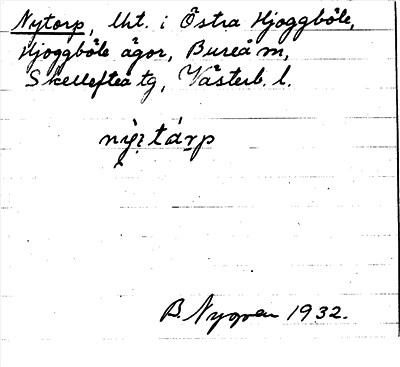 Nytorp, lht. i Östra Hjoggböle,
Hjoggböle ägor, Bureå m,
Skellefteå tg, Västerb. l.
B. Nygren 1932.